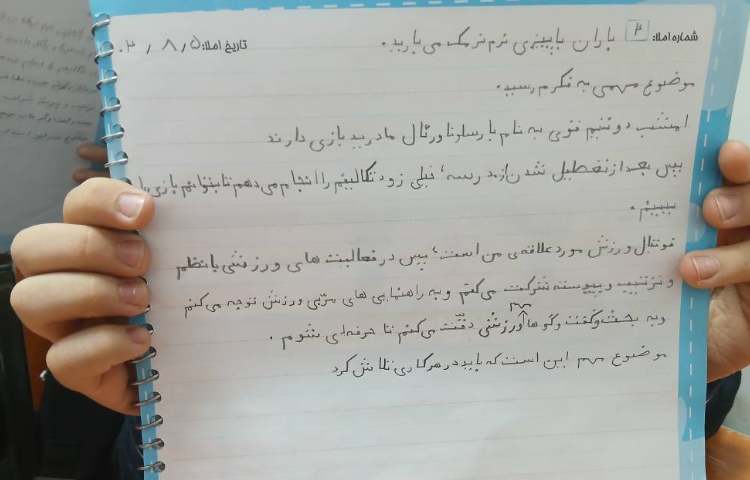 شماره املا: ۳ باران پاییزی نرم نرمک می بارید. تاریخ املا: ۳۰ / ۸ / ۵
موضوع مهمی به فکرم رسید.
امشب دو تیم قوی به نام بارسلونا و رئال مادرید بازی دارند
پس بعد از تعطیل شدن از مدرسه، خیلی زود تکالیفم را انجام می دهم تا بتوانم بازی را
ببینم.
فوتبال ورزش مورد علاقه ی من است، پس در فعالیت های ورزشی با نظم
و ترتیب و پیوسته شرکت می کنم و به راهنمایی های مربی ورزش توجه می کنم
و به بحث و گفت وگو ها ورزشی دقت می کنم تا حرفه ای شوم.
موضوع مهم این است که باید در هر کاری تلاش کرد